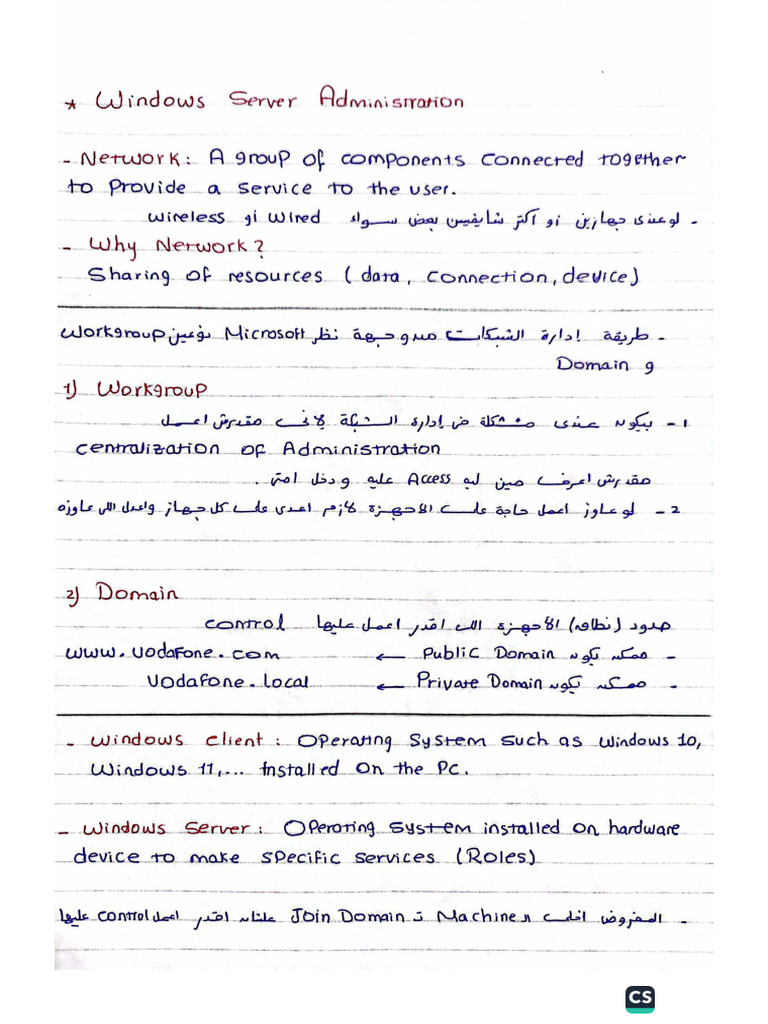 * Windows Server Administration
- Network: A group of components connected together
to provide a service to the user.
- لو عندى جهازين أو أكتر شايفين بعض سواء Wired أو Wireless
- Why Network?
Sharing of resources (data, connection, device)
- طريقة إدارة الشبكات من وجهة نظر Microsoft نوعين Workgroup
و Domain
1) Workgroup
1- بيكون عندى مشكلة فى إدارة الشبكة لانى مقدرش اعمل
centralization of Administration
مقدرش اعرف مين ليه Access عليه ودخل امتى.
2- لو عاوز اعمل حاجة على الأجهزة لازم اعدى على كل جهاز واعدل اللى عاوزه
2) Domain
حدود (نطاق) الأجهزة اللى اقدر اعمل عليها control
- ممكن تكون Public Domain ← www.vodafone.com
- ممكن تكون Private Domain ← vodafone.local
- Windows Client: Operating System such as Windows 10,
Windows 11,... Installed on the PC.
- Windows Server: Operating System installed on hardware
device to make specific services (Roles)
- المفروض اخلى الـ Machine تـ Join Domain علشان اقدر اعمل control عليها
CS